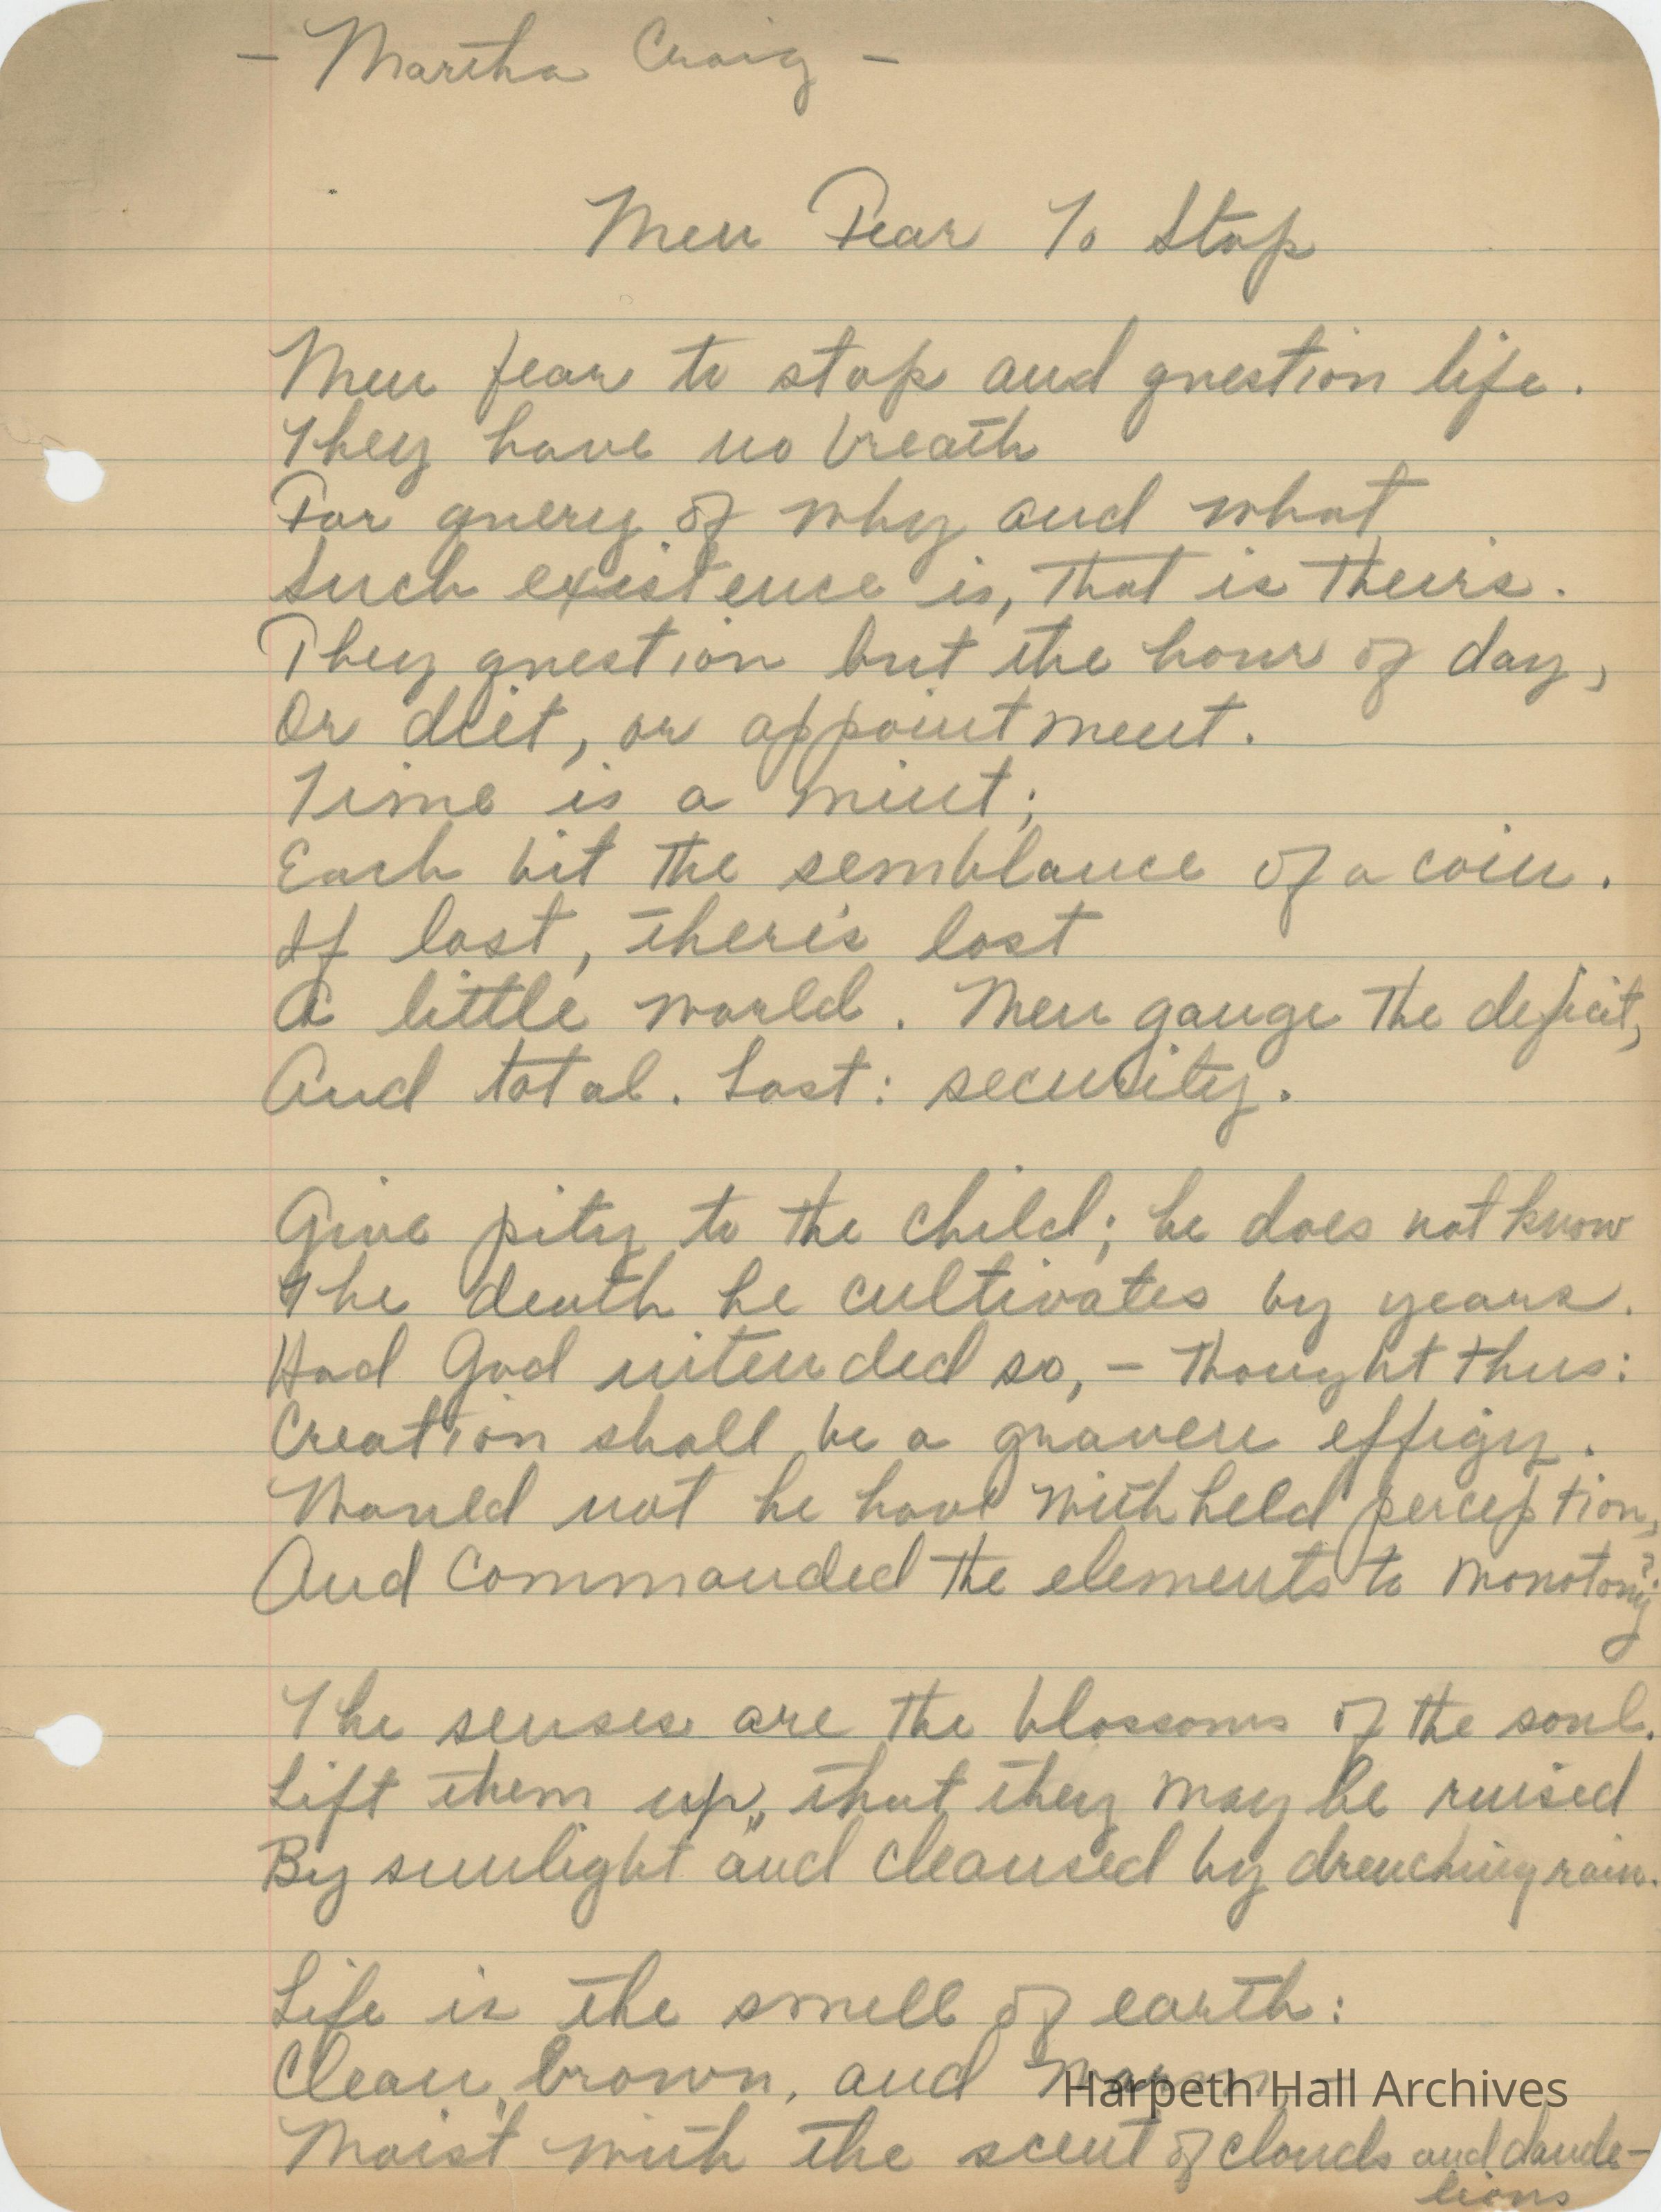 - Martha Craig -
Men Fear To Stop
Men fear to stop and question life.
They have no breath
For query of why and what
Such existence is, that is theirs.
They question but the hour of day,
Or diet, or appointment.
Time is a mint;
Each bit the semblance of a coin.
If lost, there's lost
A little world. Men gauge the deficit,
And total. Lost: security.
Give pity to the child; he does not know
The death he cultivates by years.
Had God intended so, - thought thus:
Creation shall be a graven effigy.
Would not he have withheld perception,
And commanded the elements to monotony?
The senses are the blossoms of the soul.
Lift them up, that they may be raised
By sunlight and cleansed by drenching rain.
Life is the smell of earth:
Clean, brown, and warm
Harpeth Hall Archives
Moist with the scent of clouds and dande-
lions